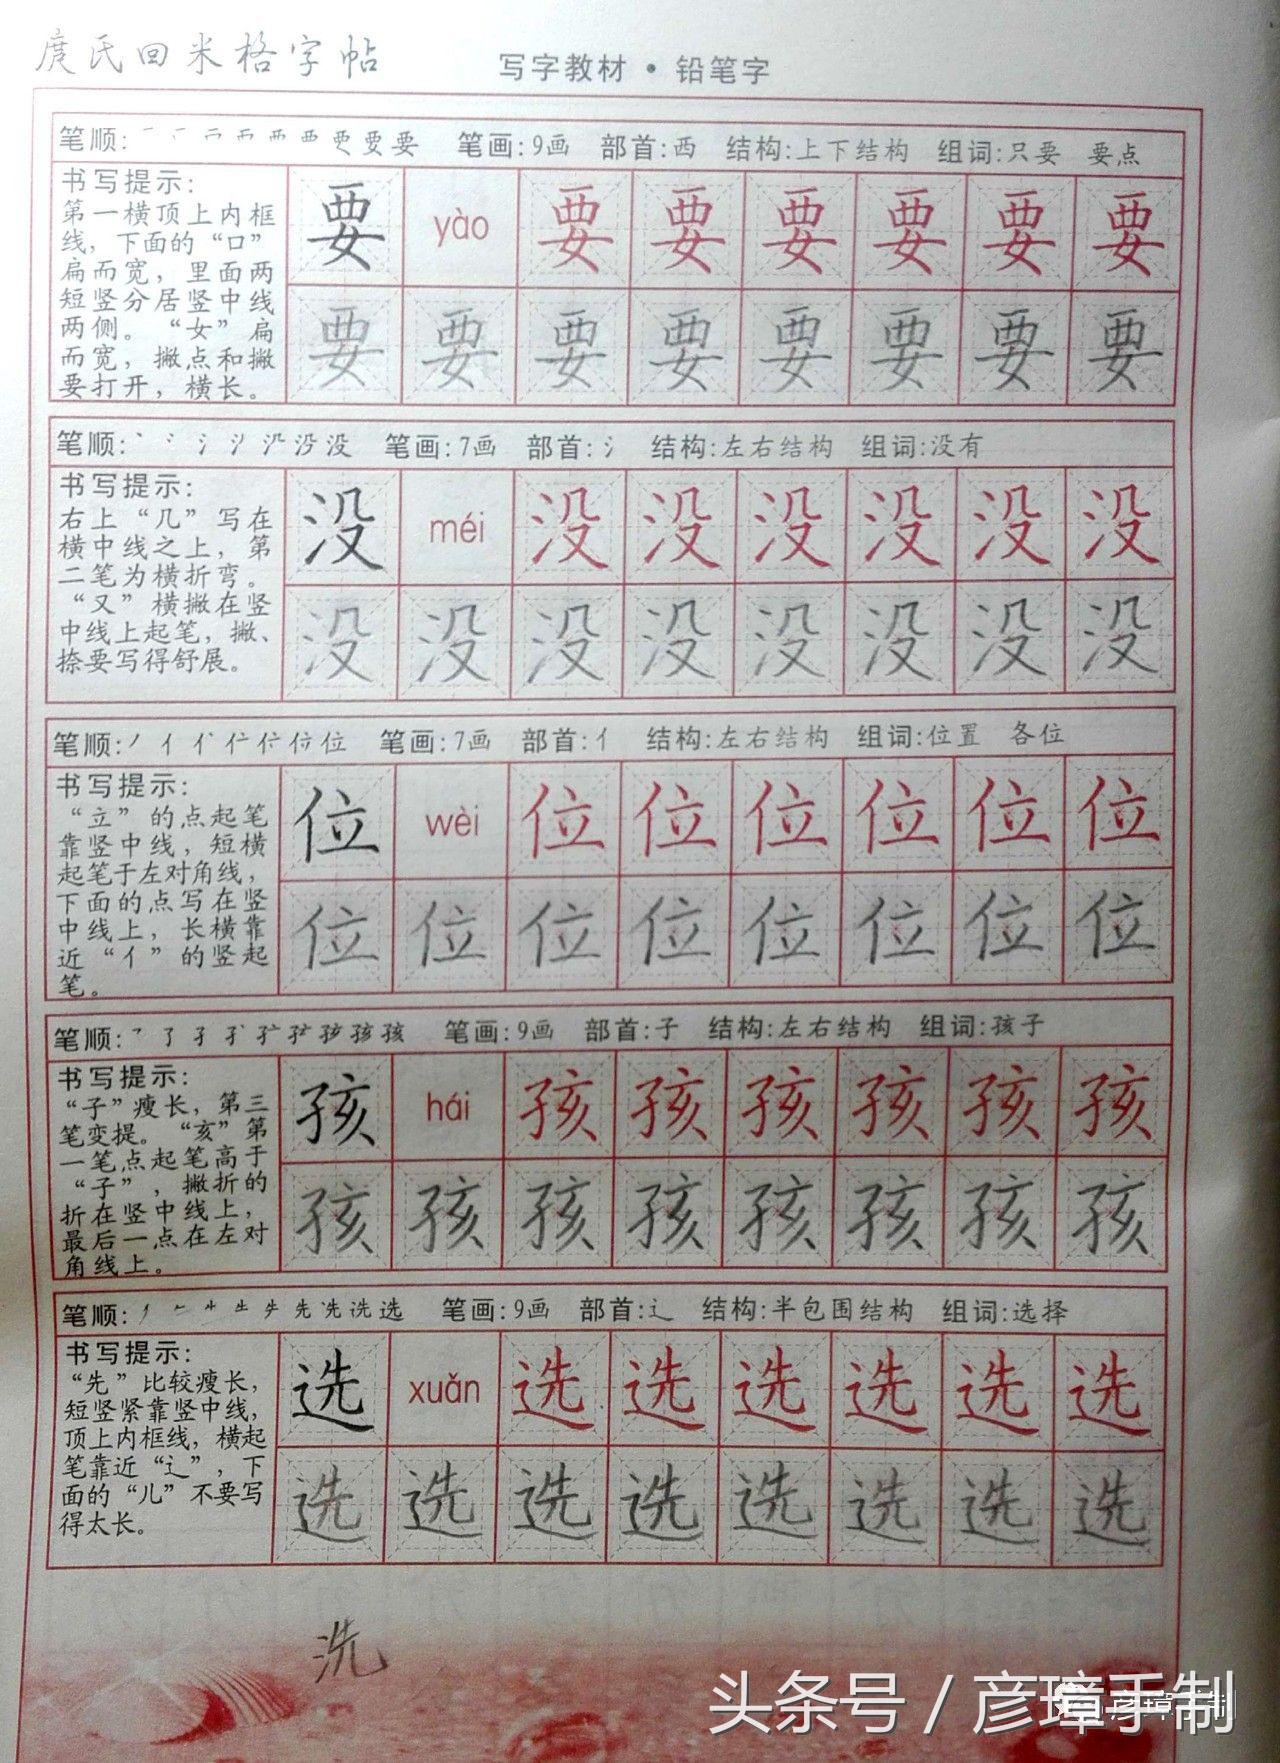 庹氏回米格字帖
写字教材·铅笔字
笔顺: 要 笔画:9画 部首:西 结构:上下结构 组词:只要 要点
书写提示:
第一横顶上内框
线，下面的“口”
扁而宽，里面两
短竖分居竖中线
两侧。“女”扁
而宽，撇点和撇
要打开，横长。
要 yào 要 要 要 要 要 要
要 要 要 要 要 要 要 要
笔顺: 没 笔画:7画 部首:氵 结构:左右结构 组词:没有
书写提示:
右上“几”写在
横中线之上，第
二笔为横折弯。
“又”横撇在竖
中线上起笔，撇、
捺要写得舒展。
没 méi 没 没 没 没 没 没
没 没 没 没 没 没 没 没
笔顺: 位 笔画:7画 部首:亻 结构:左右结构 组词:位置 各位
书写提示:
“立”的点起笔
靠竖中线，短横
起笔于左对角线，
下面的点写在竖
中线上，长横靠
近“亻”的竖起
笔。
位 wèi 位 位 位 位 位 位
位 位 位 位 位 位 位 位
笔顺: 孩 笔画:9画 部首:子 结构:左右结构 组词:孩子
书写提示:
“子”瘦长，第三
笔变提。“亥”第
一笔点起笔高于
“子”，撇折的
折在竖中线上，
最后一点在左对
角线上。
孩 hái 孩 孩 孩 孩 孩 孩
孩 孩 孩 孩 孩 孩 孩 孩
笔顺: 选 笔画:9画 部首:辶 结构:半包围结构 组词:选择
书写提示:
“先”比较瘦长，
短竖紧靠竖中线，
顶上内框线，横起
笔靠近“辶”，下
面的“儿”不要写
得太长。
选 xuǎn 选 选 选 选 选 选
选 选 选 选 选 选 选 选
洗
头条号／彦璋手制